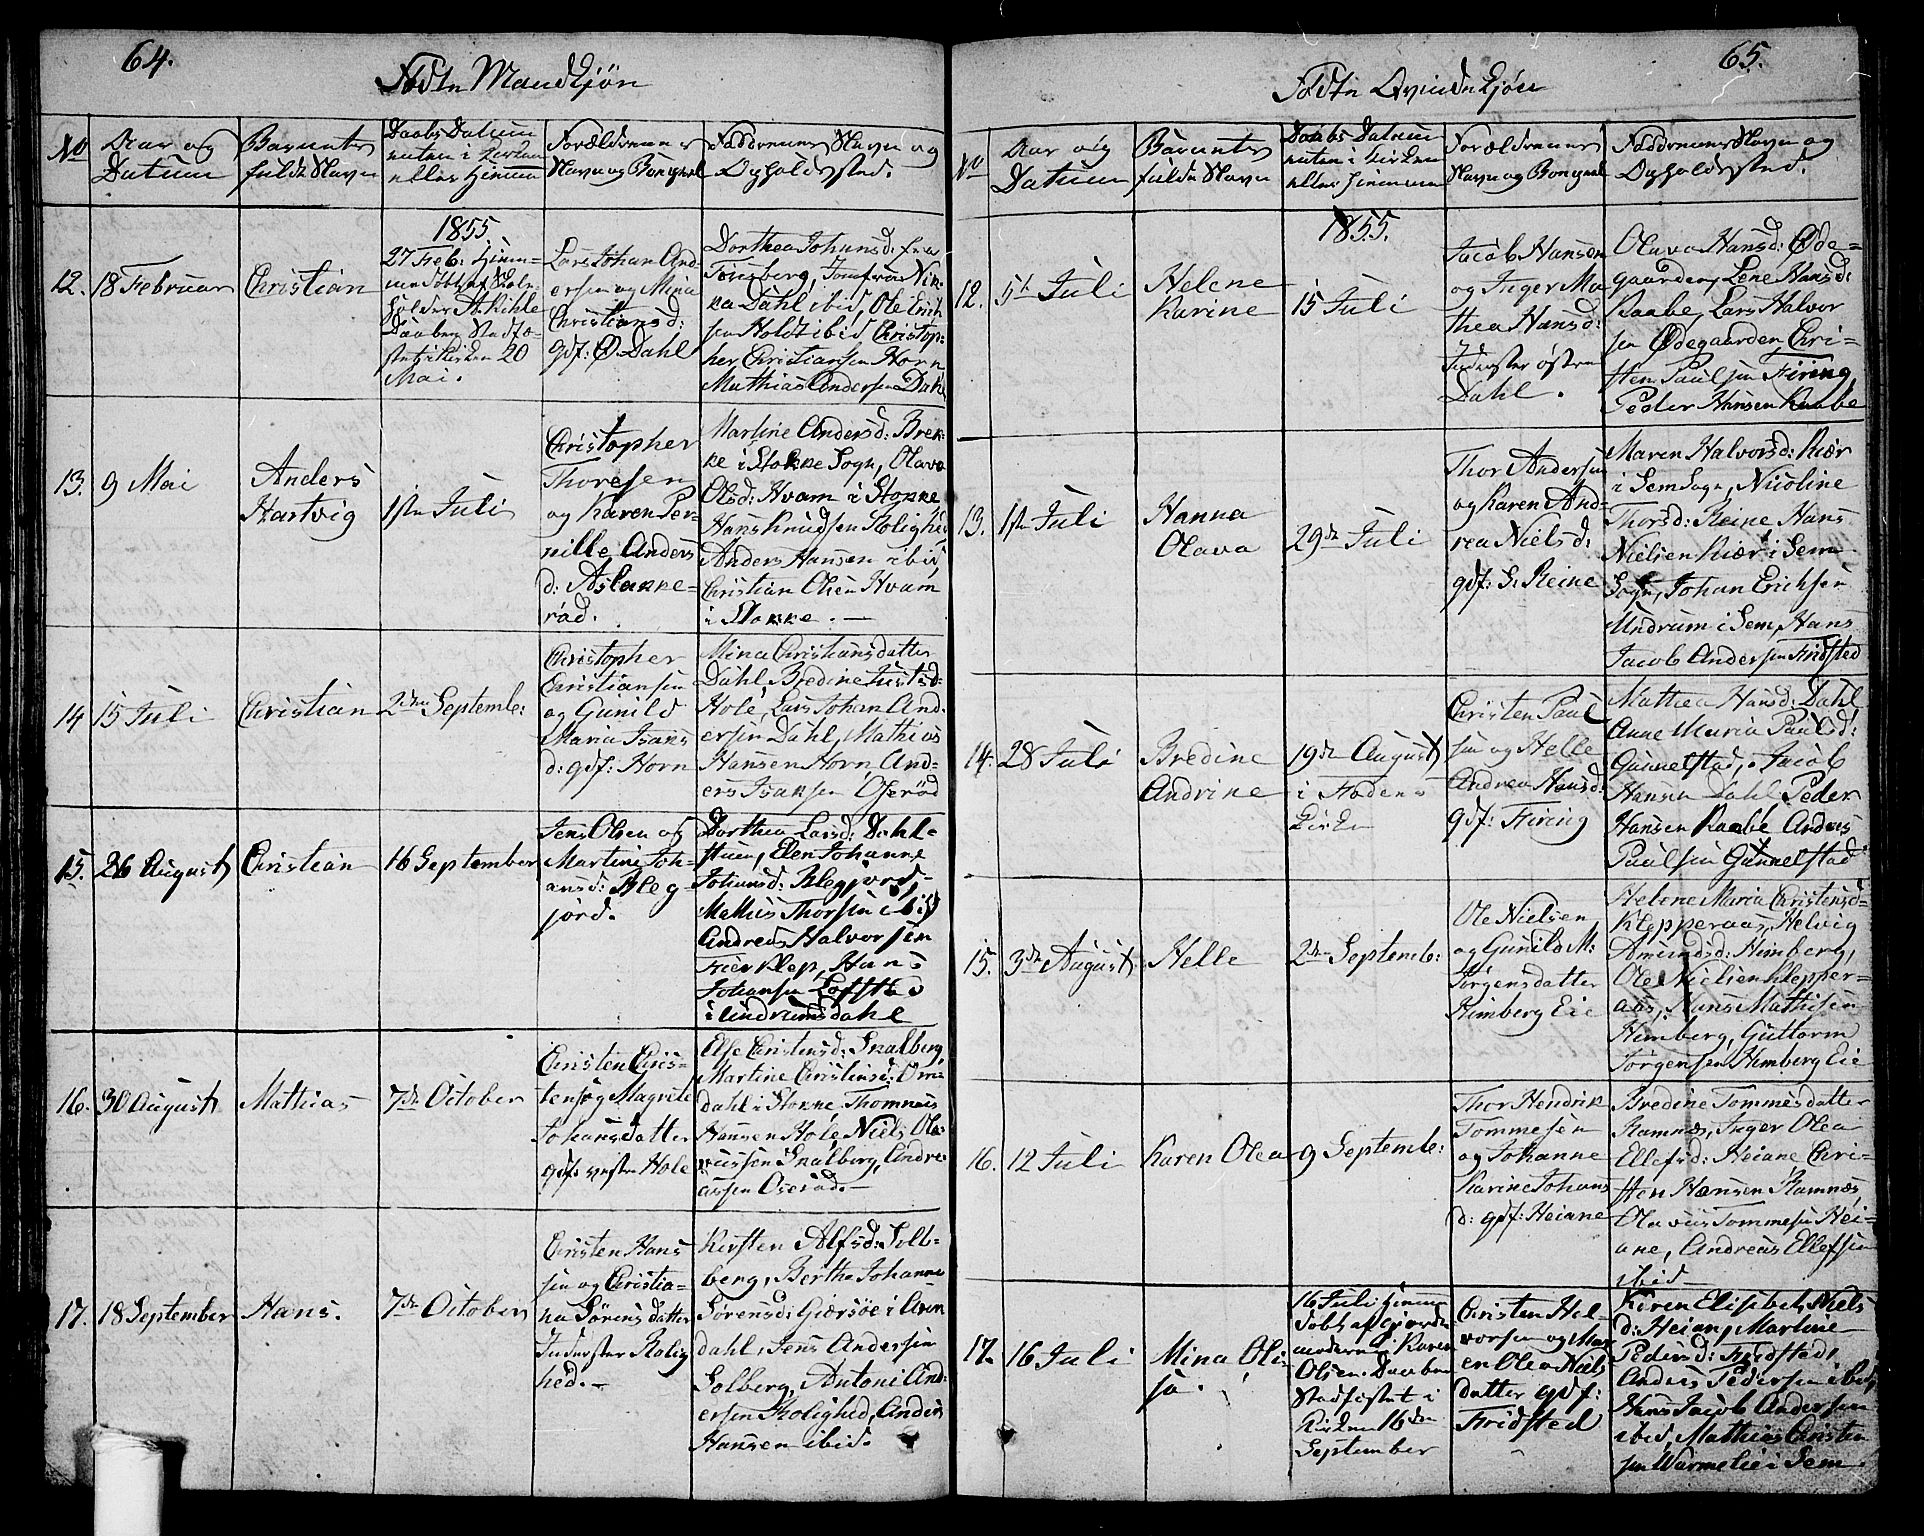 64.
Födte Mandkjön
No
Aar og
Datum
Barnets
fulde Navn
Daabs Datum
enten i Kirken
eller Hjemme
Forældrenes
Navn og Borgerl
Faddernes Navn og
Opholdssted.
12.
18 Februar
Christian
1855
27 Feb: Hjem-
medöbt af Skole-
holder A. Kihle
Daaben Stadfæ-
stet i Kirken 20
Mai.
Lars Johan And-
ersen og Mina
Christiansd:
gdf: Ø Dahl
Dorthea Johansd: fra
Tönsberg, Jomfrue Nik-
ka Dahl ibid, Ole Erik
sen Holdt ibid Christop-
her Christiansen Horn
Mathias Andersen Dahl
13.
9 Mai
Anders
Hartvig
1ste Juli
Christopher
Thoresen
og Karen Per-
nille Anders
d: Aslakke-
röd.
Martine Andersd: Brek-
ke i Stokke Sogn, Olava
Olsd: Hvam i Stokke
Hans Knudsen Rolighed
Anders Hansen ibid,
Christian Olsen Hvam
i Stokke. —
14
15 Juli
Christian
2den Septembe:
Christopher
Christiansen
og Gunild
Maria Isaks
d: gdf: Horn
Mina Christiansdatter
Dahl Bredine Justsd:
Hole, Lars Johan And-
ersen Dahl, Mathias
Hansen Horn, And-
ers Isaksen Oseröd
15.
26 August
Christian
16 September
Jens Olsen og
Martine Joh-
ansd: Bleg-
jörd.
Dorthea Larsd: Dahl-
stuen, Elen Johanne
Johansd: Blegjord-
Mathis Thorsen ibid
Andreas Halvorsen
Fierklep, Hans
Johansen Lofstad
i Undrumsdahl
16.
30 August
Mathias
7de October
Christen Chris-
tens og Magrete
Johansdatter
gdf: vestre Hole
Else Christensd: Snalberg,
Martine Christiansd: Om-
dahl i Stokke Thommas
Hansen Hole, Niels Ola-
vussen Snalberg, Andre-
assen Oseröd. —
17.
18 September
Hans.
7de October
Christen Hans
sen og Christia-
na Sörensdatter
Inderster Rolig
hed. —
Kirsten Alfsd: Solb-
berg, Berthe Johanne
Sörensd: Giersöe i Aren
dahl, Jens Andersen
Solberg, Antoni And-
ersen Rolighed, Anders
Hansen ibid.
65.
Födte Qvindekjön
No
Aar og
Datum
Barnets
fulde Navn
Daabs Datum
enten i Kirken
eller hjemme
Forældrenes
Navn og Borgerl
Faddernes Navn og
Opholdssted.
12.
5te Juli
Helene
Karine
1855.
15 Juli
Jacob Hansen
og Inger Ma-
thea Hansd:
Inderster östre
Dahl.
Olava Hansd: Øde-
gaarden, Lene Hansd:
Raabe, Lars Halvor
sen Ødegaarden Chri-
sten Paulsen Firing,
Peder Hansen Raabe
13.
1ste Juli
Hanna
Olava
29de Juli
Thor Andersen
og Karen And-
rea Nielsd:
gdf: S: Reine
Maren Halvorsd: Kiær
i Sem Sogn, Nicoline
Thorsd: Reine Hans
Nielsen Kiær i Sem
Sogn, Johan Erichsen
Undrum i Sem, Hans
Jacob Andersen Fridsted
14.
28 Juli
Bredine
Andrine
19de August
i Hodens
Kirke
Christen Paul
sen og Helle
Andrea Hansd:
gdf: Firing
Mathea Hansd: Dahl
Anne Maria Paulsd:
Gunnelstad, Jacob
Hansen Dahl, Peder
Hansen Raabe Anders
Paulsen Gunnelstad
15.
3de August
Helle
2den Septembe:
Ole Nielsen
og Gunild M:
Jörgensdatter
Himberg Eie
Helene Maria Christensd-
Klepperaas, Helvig
Amundsd: Himberg,
Ole Nielsen Klepper-
aas, Hans Mathisen
Himberg, Guttorm
Jörgensen Himberg Eie
16.
12 Juli
Karen Olea
9 Septembe:
Thor Hendrik
Tommesen
og Johanne
Karine Johans
d: gdf: Heiane
Bredine Tommesdatter
Ramnæs, Inger Olea
Ellefsd: Heiane Chri-
sten Hansen Ramnæs,
Olavus Tommesen Hei-
ane, Andreas Ellefsen
ibid
17.
16 Juli
Mina Oli
sa.
16 Juli Hjemme
döbt af Gjorde
moderen Karen
Olsen. Daaben
Stadfæstet i
Kirken 16den
September
Christen Hal-
vorsen og Mar
en Olea Niels
datter gdf:
Fridsted
Karen Elisabet Niels
d: Heian, Martine
Pedersd: Fridsted,
Anders Pedersen ibid,
Hans Jacob Andersen
ibid, Mathias Christen
sen Warmelie i Sem.